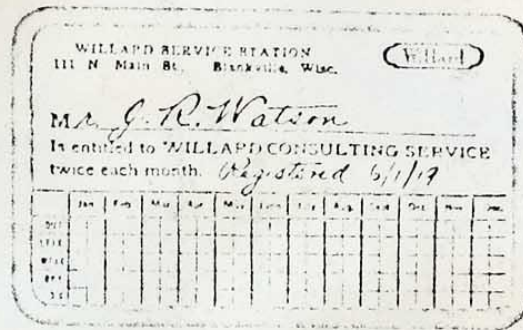 WILLARD SERVICE STATION
111 N Main St., Blankville, Wisc.
Willard
Mr. J. R. Watson
Is entitled to WILLARD CONSULTING SERVICE
twice each month. Registered 6/1/19
Jan Feb Mar Apr May June July Aug Sept Oct Nov Dec